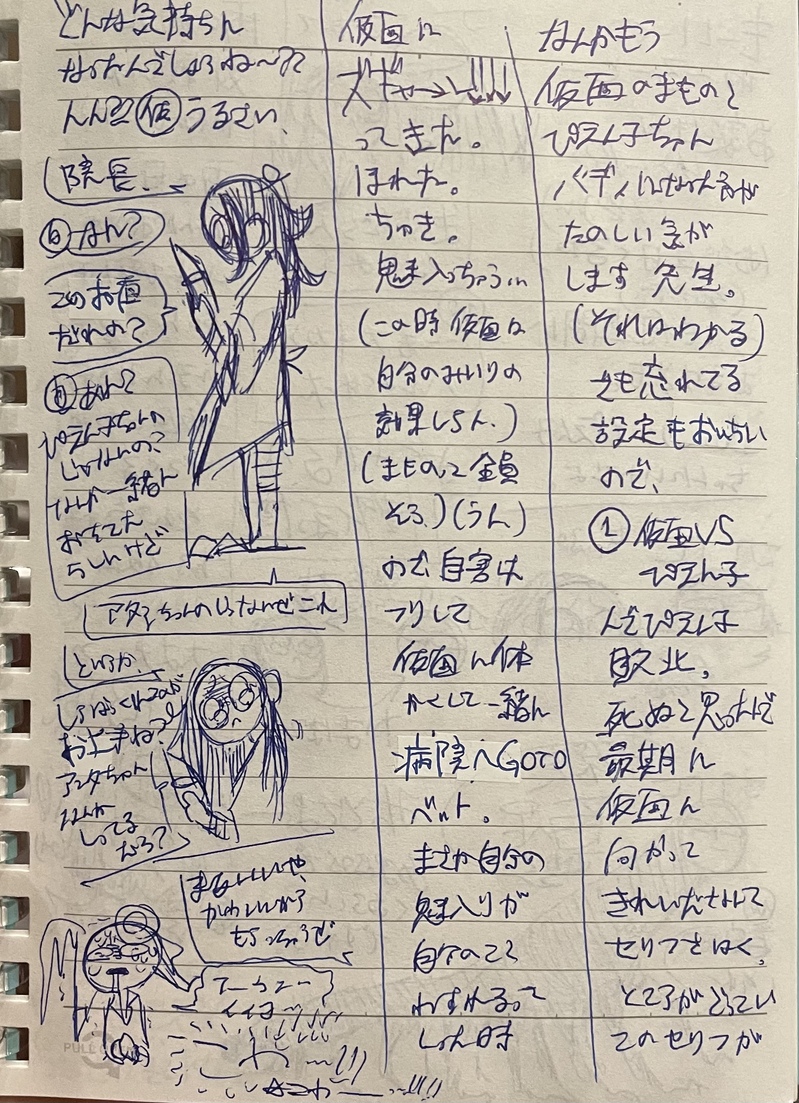 なんかもう
仮面のまものと
ぴえん子ちゃん
バディになった方が
たのしい気が
します 先生。
(それはわかる)
とも恋れてる
設定もおいちい
ので、
① 仮面VS
ぴえん子
んでぴえん子
敗北。
死ぬと思ったんで
最期に
仮面に
向かって
きれいだなんて
セリフをはく。
ところがどっこい
このセリフが
仮面に
ズギャーン↓↓↓
ってきた。
ほれた。
ちゅき。
魅入っちゃう
(この時仮面は
自分のみいりの
効果しらん.)
(まものって全員
そう.)(うん)
ので自害は
フリして
仮面に体
かくして一緒に
病院へGOTO
ベット。
まさか自分の
魅入りが
自分のこと
わすれるって
しった時
どんな気持ちに
なったんでしょうね〜??
んん?? 仮 うるさい、
院長、
なん?
このお面
だれの?
あん?
ぴえん子ちゃんの
じゃないの?
なんか一緒に
おちてた
らしいけど
アタシちゃんのじゃないぜこれ
というか
お上手ね?
アンタちゃん
なんか
しってる
だろ?
まあいいや、
かわいいから
もらっちゃうぜ
エーうエー
イイヨー
こわ〜!!